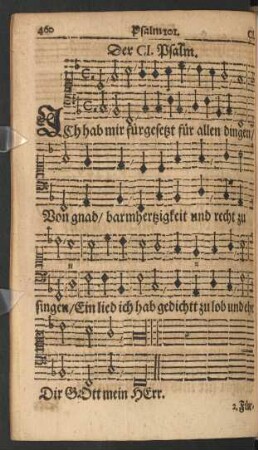 460 Psalm 101.
Der CI. Psalm.
ICh hab mir fürgesetzt für allen dingen/
Von gnad/ barmhertzigkeit und recht zu
singen/ Ein lied ich hab gedichtt zu lob und ehr
Dir GOtt mein HErr.
2. Für-